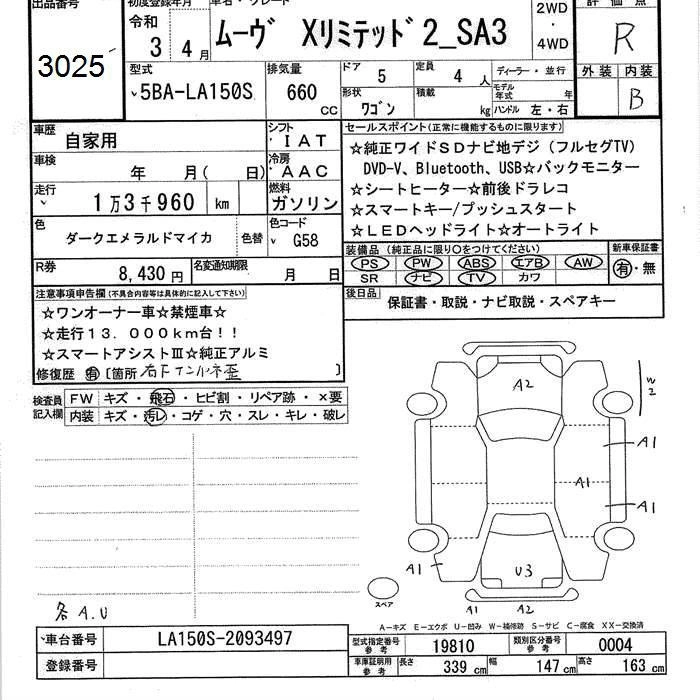 出品番号
初度登録年月
車名・グレード
評価点
令和
3 4月
ムーヴ Xリミテッド2_SA3
2WD
・
4WD
R
3025
型式
5BA-LA150S
排気量
660
CC
ドア
5
定員
4 人
ディーラー・並行
モデル年式
年
外装 内装
B
形状
ワゴン
積載
kg
ハンドル 左・右
車歴
自家用
シフト
IAT
セールスポイント(正常に機能するものに限ります)
車検
年 月( 日)
冷房
AAC
☆純正ワイドSDナビ地デジ(フルセグTV)
DVD-V、Bluetooth、USB☆バックモニター
走行
1万3千960 km
燃料
ガソリン
☆シートヒーター☆前後ドラレコ
☆スマートキー/プッシュスタート
☆LEDヘッドライト☆オートライト
色
ダークエメラルドマイカ
色替
色コード
G58
装備品(純正品に限り○をつけてください)
新車保証書
PS PW ABS エアB AW
有・無
SR ナビ TV カワ
R券
8,430円
名変通知期限
月 日
後日品
保証書・取説・ナビ取説・スペアキー
注意事項申告欄(不具合内容等は具体的に記入して下さい)
☆ワンオーナー車☆禁煙車☆
☆走行13.000km台!!
☆スマートアシストⅢ☆純正アルミ
修復歴 有 〔箇所 右Fインパネ歪 〕
検査員
記入欄
FW キズ・飛石・ヒビ割・リペア跡・×要
内装 キズ・汚レ・コゲ・穴・スレ・キレ・破レ
A2
W2
A1
A1
A1
A1
U3
スペア
A1 A2
各A.U
A-キズ E-エクボ U-凹み W-補修跡 S-サビ C-腐食 XX-交換済
車台番号
LA150S-2093497
型式指定番号
参考
19810
類別区分番号
参考
0004
登録番号
車庫証明用
参考
長さ
339 cm
幅
147 cm
高さ
163 cm